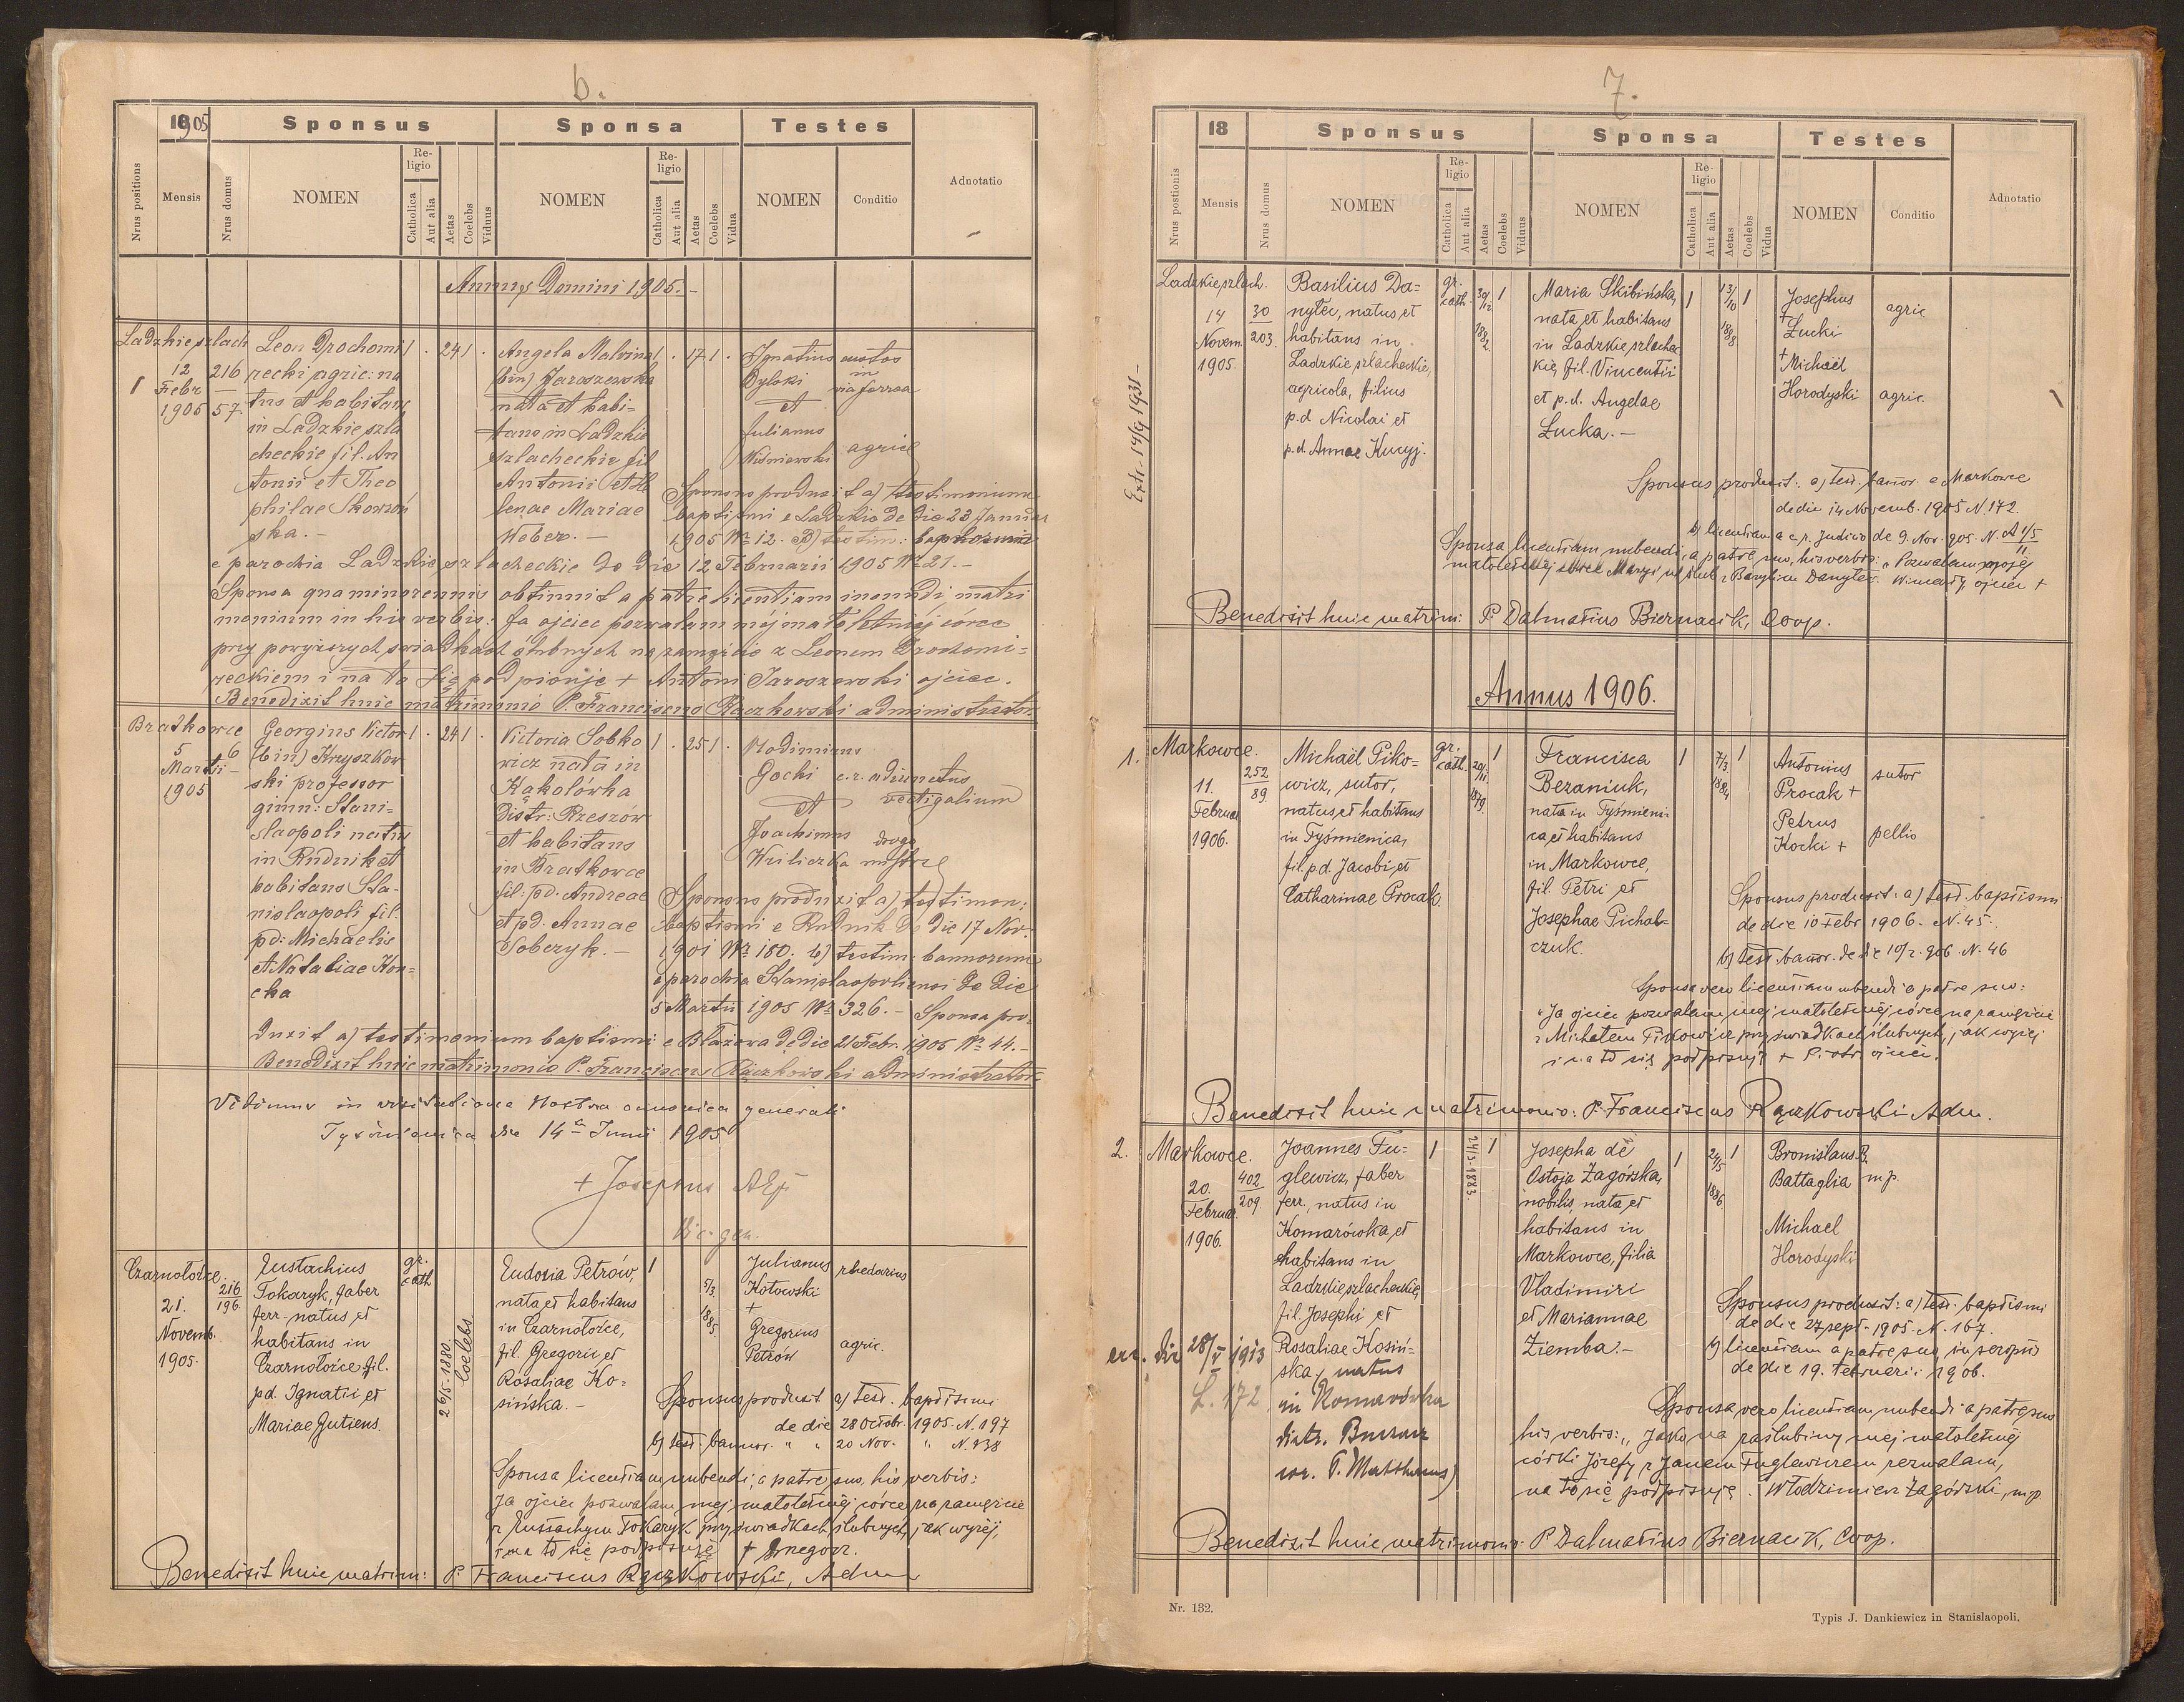 6.
1905
Sponsus
Sponsa
Testes
Nrus positions
Mensis
Nrus domus
NOMEN
Religio
Catholica
Aut alia
Aetas
Coelebs
Viduus
NOMEN
Religio
Catholica
Aut alia
Aetas
Coelebs
Vidua
NOMEN
Conditio
Adnotatio
Annus Domini 1905.-
Ladzkie szlach
1
12
Febr
1905
216
57.
Leon Drochomi
recki agric: na
tus et habitans
in Ladzkie szla
checkie fil. An
tonii et Theo
philae Skowroń
ska. -
1 . 24 1 .
Angela Malvina
(bin) Jaroszewska
nata et habi-
tans in Ladzkie
szlacheckie fil
Antonii et He
lenae Mariae
Weber. -
1 . 17 1 .
Ignatius
Byloki
et
Julianus
Wiśniewski
custos
in
via ferrea
agric
Sponsus produxit a) testimonium
baptismi e Ladzkie de die 23 Januar
1905 Nr 12. B) testim: bannorum
e parochia Ladzkie szlacheckie de die 12 Februarii 1905 Nr 21. -
Sponsa qua minorennis obtinuit a patre licentiam ineundi matri
monium in his verbis: Ja ojciec pozwalam mej małoletniej córce
przy powyższych świadkach ślubnych na zamęście z Leonem Drochomi-
reckiem i na to się podpisuje + Antoni Jaroszewski ojciec.
Benedixit huic matrimonio P. Franciscus Rączkowski administrator
Bratkowce
5
Martii
1905
6
Georgius Victor
(bin) Krzyszkow
ski professor
gimn: Stani-
slaopoli natus
in Rudnik et
habitans Sta-
nislaopoli fil.
pd: Michaelis
et Nataliae Kon-
cka
1 . 24 1 .
Victoria Sobko
wicz nata in
Kąkolówka
Distr: Rzeszów
et habitans
in Bratkowce
fil: pd: Andreae
et pd. Annae
Sobczyk. -
1 . 25 1 .
Wlodimirus
Gocki
et
Joachimus
Wiliczka
c.r. adiunctus
vectigalium
Sponsus produxit a) testimon:
baptismi e Rudnik de die 17 Nov.
1901 Nr 180. b) testim. bannorum
e parochia Stanislaopoliensi de die
5 Martii 1905 Nr 326. - Sponsa pro-
duxit a) testimonium baptismi e Błażowa de die 21 Febr. 1905 Nr 44. -
Benedixit huic matrimonio P. Franciscus Rączkowski administrator
Vidimus in visitatione Nostra canonica generali
Tyśmienica die 14a Junii 1905
+ Josephus
Czarnołoźce
21.
Novemb.
1905.
216
196.
Eustachius
Tokaryk, faber
ferr. natus et
habitans in
Czarnołoźce fil.
pd. Ignatii et
Mariae Jutiens.
gr.
cath
26/5. 1880.
Coelebs
Eudoxia Petrów,
nata et habitans
in Czarnołoźce,
fil. Gregorii et
Rosaliae Ko-
sińska. -
1
5/3
1885.
Julianus
Kotowski
+
Gregorius
Petrów
rhedarius
agric.
Sponsus produxit a) test. baptismi
de die 28 Octobr. 1905. N. 197
b) test. bannor. " " 20 Nov. " N. 238
Sponsa licentiam nubendi, a patre, suo, his verbis:
Ja ojciec pozwalam mej małoletniej córce na zamęście
z Eustachym Tokaryk przy świadkach ślubnych, jak wyżej,
i na to się podpisuję + Grzegorz.
Benedixit huic matrim: P. Franciscus Rączkowski, Adm
7.
18
Sponsus
Sponsa
Testes
Nrus postionis
Mensis
Nrus domus
NOMEN
Religio
Catholica
Aut alia
Aetas
Coelebs
Viduus
NOMEN
Religio
Catholica
Aut alia
Aetas
Coelebs
Vidua
NOMEN
Conditio
Adnotatio
Extr. 14/9 1931 -
Ladzkie szlach.
14
Novem.
1905.
30
203.
Basilius Da-
nyłec, natus et
habitans in
Ladzkie szlacheckie,
agricola, filius
p.d Nicolai et
p.d. Annae Kucyj.
gr.
cath.
30/12
1882.
1
Maria Skibińska,
nata et habitans
in Ladzkie szlachec
kie, fil. Vincentii
et p.d. Angelae
Łucka. -
1
13/10
1888
1
Josephus
+
Łucki
+
Michaël
Horodyski
agric
agric.
Sponsus produxit: a) test. bannor. e Markowce
de die 14 Novemb. 1905 N. 172.
b) licentiam a c.r. Judicio de 9. Nov. 905. N. A 1/5
11
Sponsa licentiam nubendi, a patre suo, his verbis: "Pozwalam mojej
małoletniej córce Maryi na ślub z Bazylim Danyłec. Wincenty, ojciec +
Benedixit huic matrim: P. Dalmatius Biernacik, Coop.
Annus 1906.
1.
Markowce.
11.
Februar
1906.
252
89.
Michaël Piko-
wicz, sutor,
natus et habitans
in Tyśmienica,
fil. p.d. Jacobi et
Catharinae Procak.
gr.
cath.
20/11
1879.
1
Francisca
Bezaniuk,
nata in Tyśmieni
ca et habitans
in Markowce,
fil. Petri et
Josephae Pichal-
czuk.
1
7/3
1884
1
Antonius
Procak +
Petrus
Kocki +
sutor
pellio
Sponsus produxit: a) test. baptismi
de die 10 Febr 1906. N. 45.
b) test. bannor. de die 10/2. 906. N. 46
Sponsa vero licentiam nubendi a patre suo:
"Ja ojciec pozwalam mej małoletniej córce na zamęście
z Michałem Pikowicz przy świadkach ślubnych, jak wyżej
i na to się podpisuję + Piotr ojciec.
Benedixit huic matrimonio: P. Franciscus Rączkowski Adm.
2.
Markowce.
20.
Februar.
1906.
402
209.
Joannes Fu-
glewicz, faber
ferr., natus in
Komarówka et
habitans in
Ladzkie szlacheckie,
fil. Josephi et
Rosaliae Kosiń-
ska, natus
in Komarówka
distr. Buczacz
1
24/5. 1883.
1
Josepha de
Ostoja Zagórska,
nobilis, nata et
habitans in
Markowce, filia
Vladimiri
et Mariannae
Ziemba. -
1
24/5
1886
1
Bronislaus B.
Battaglia mp.
Michael
Horodyski
Sponsus produxit: a) test. baptismi
de die 27 sept. 1905. N. 167.
b) licentiam a patre suo in scriptis
de die 19. Februarii 1906.
Sponsa vero licentiam nubendi a patre suo
his verbis: "Jako na zaślubiny mej małoletniej
córki Józefy z Janem Fuglewiczem zezwalam,
na to się podpisuję. Włodzimierz Zagórski, mp.
28/V 1913
L. 172
Benedixit huic matrimonio: P. Dalmatius Biernacik, Coop.
Nr. 132.
Typis J. Dankiewicz in Stanislaopoli.